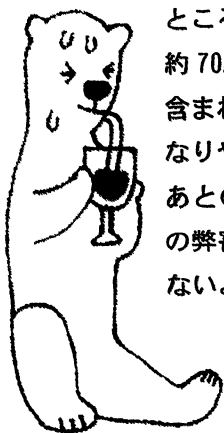 ところ
約70
含まれ
なりや
あとの
の弊害
ないよ